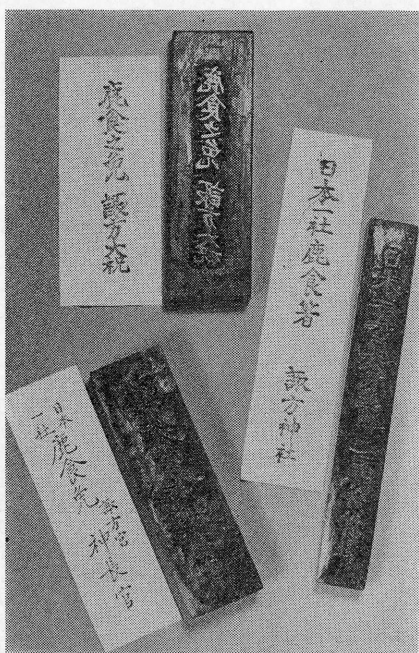 鹿食之免 諏方大祝
鹿食之免 諏方大祝
日本一社鹿食箸 諏方神社
日本一社
鹿食免
諏方宮
神長官